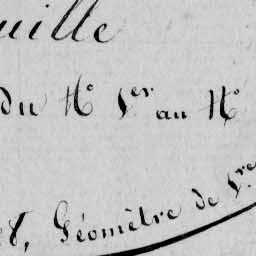 uille
du N° 1er au N°
Géomètre de 1re